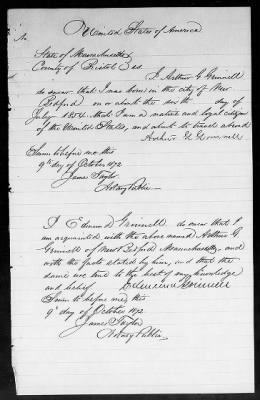 United States of America
State of Massachusetts
County of Bristol } ss.
I Arthur G Grinnell
do swear that I was born in the city of New
Bedford on or about the day of
July 1854 that I am a native and loyal citizen
of the United States, and about to travel abroad
Arthur G Grinnell
Sworn to before me this
9th day of October 1872
James Taylor
Notary Public
I Edmund Grinnell do swear that I
am acquainted with the above named Arthur G
Grinnell of New Bedford Massachusetts and
with the facts stated by him, and that the
same are true to the best of my knowledge
and belief Edmund Grinnell
Sworn to before me this
9th day of October 1872
James Taylor
Notary Public